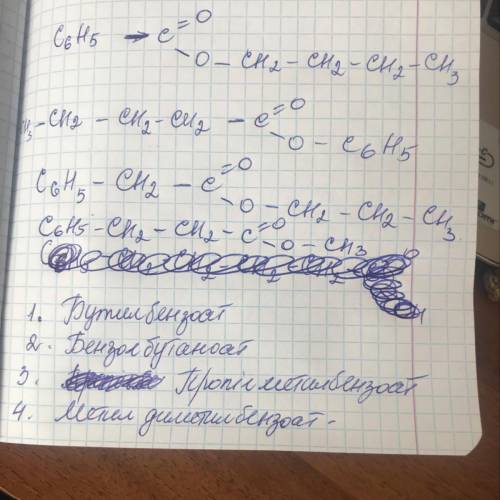 C6H5 → C =O
O - CH2 - CH2 - CH2 - CH3
CH3 - CH2 - CH2 - CH2 - C =O
O - C6H5
C6H5 - CH2 - C =O
O - CH2 - CH2 - CH3
C6H5 - CH2 - CH2 - C =O - O - CH3
1. Бутилбензоат
2. Бензолбутаноат
3. Пропіл метилбензоат
4. Метил диметилбензоат.